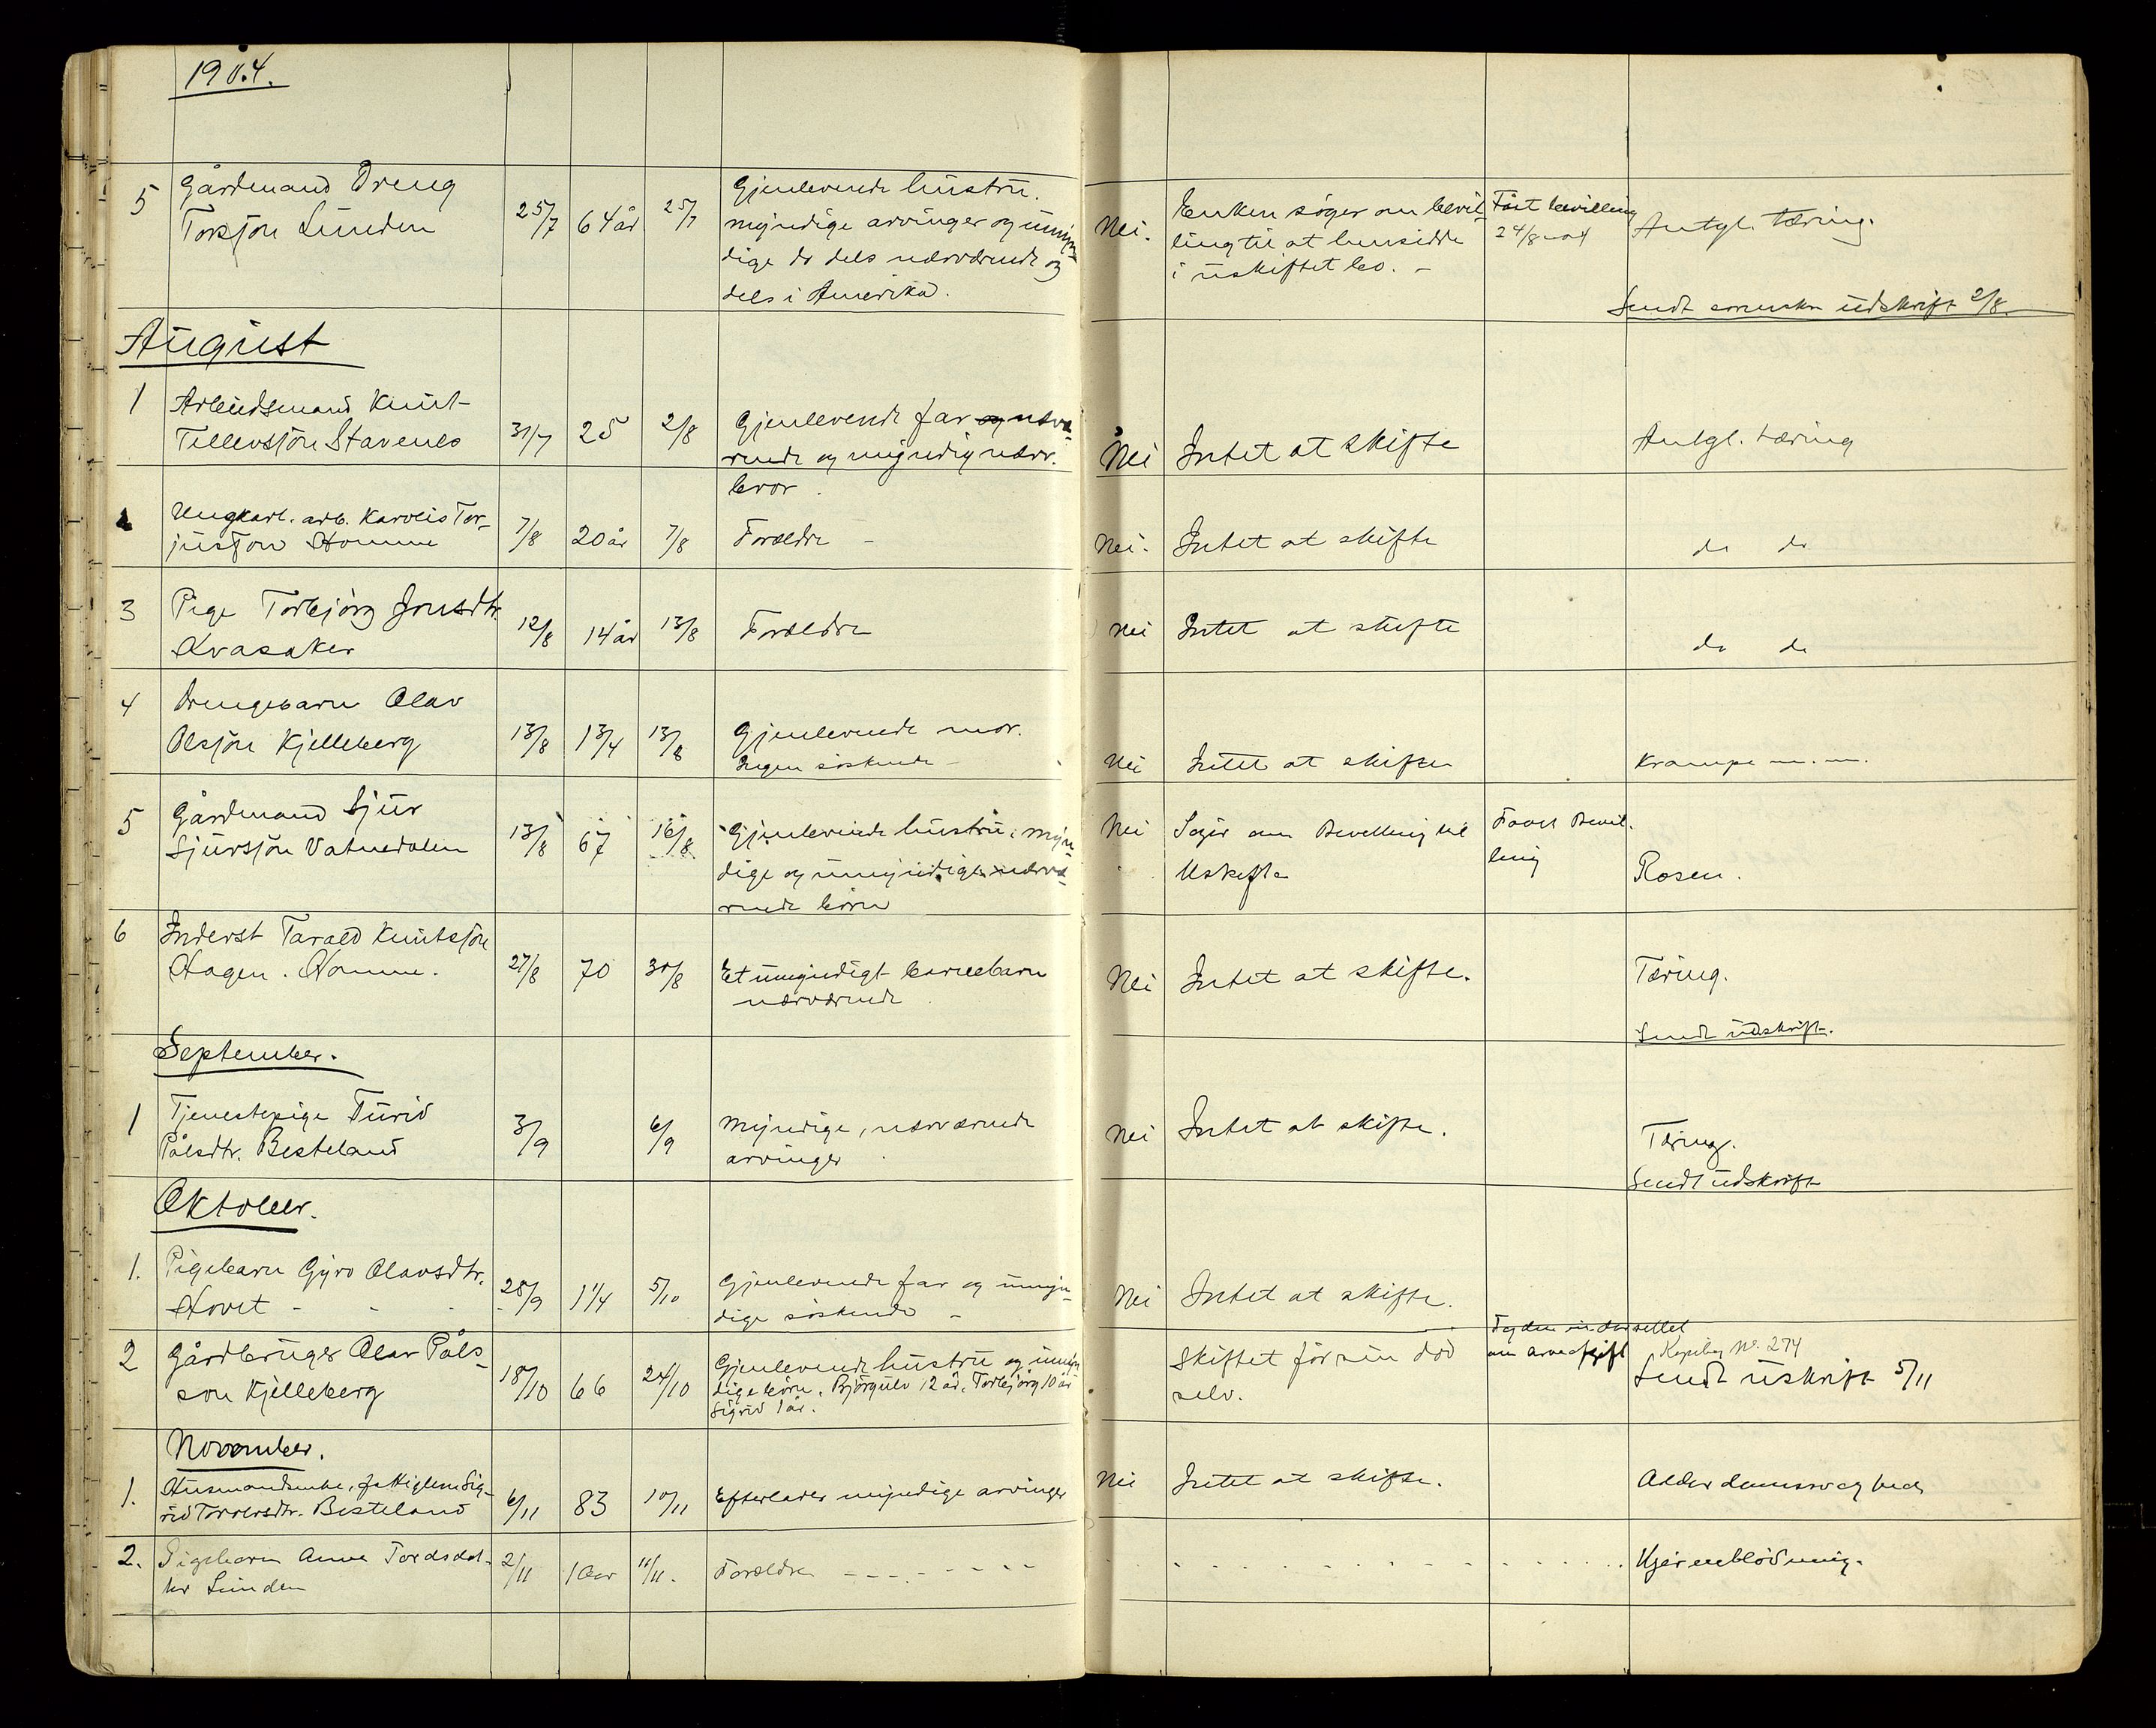 1904.
5 Gårdmand Dreng
Torsjön Linden 25/7 64 år 25/7
Gjenlevende hustru.
myndige arvinger og umyn-
dige do dels nærværende og
dels i Amerika.
Nei. Enken söger om bevil-
ling til at hensidde
i uskiftet bo. -
Fåt bevilling
24/8
Antgl. tæring.
Sendt udskrift 2/8
August
1 Arbeidsmand Knut
Tellevsjön Stavenes 31/7 25 2/8
Gjenlevende far og nærvæ-
rende og myndig nærv.
bror.
Nei Intet at skifte
Antgl. tæring
2 Ungkarl. arb. Karveis Tor-
jusson Homme 7/8 20 år 7/8 Forældre -
Nei. Intet at skifte do do
3 Pige Torbjörg Jonsdtr.
Kvasaker 12/8 14 år 13/8 Forældre
Nei Intet at skifte do do
4 Drengebarn Olav
Olsjön Kjelleberg 13/8 13/4 13/8
Gjenlevende mor.
Ingen söskende -
Nei Intet at skifte Krampe m. m.
5 Gårdmand Sjur
Sjursjön Vatnedalen 13/8 67 16/8
Gjenlevende hustru, myn-
dige og umyndige nærvæ-
rende börn
Nei Söger om Bevilling til
Uskifte
Faaet Bevil-
ling
Rosen.
6 Inderst Tarald Knutsjön
Hagen. Homme. 27/8 70 30/8
Et umyndigt barnebarn
nærværende
Nei Intet at skifte. Tæring.
Sendt udskrift.
September.
1 Tjenestepige Turid
Pålsdtr. Besteland 3/9 6/9
Myndige, nærværende
arvinger.
Nei Intet at skifte. Tæring.
Sendt udskrift
Oktober.
1. Pigebarn Gyro Olavsdtr.
Hovet - 28/9 1 1/4 5/10
Gjenlevende far og umyn-
dige söskende -
Nei Intet at skifte.
2 Gårdbruger Olav Påls-
son Kjelleberg 18/10 66 24/10
Gjenlevende hustru og umyn-
dige börn. Björgulv 12 år, Torbjörg 10 år
Sigrid 1 år.
Skiftet för sin död
selv.
om arveafgift
Kopibog No. 274
Sendt uskrift 5/11
November.
1. Husmandsenke, fattiglem Sig-
rid Torversdtr. Besteland 6/11 83 10/11 Efterlader myndige arvinger
Nei Intet at skifte. Alderdomssvaghed
2. Pigebarn Anne Tordsdat-
ter Linden 2/11 1 Aar 11/11. Forældre - - - - - -
Hjerneblödning.